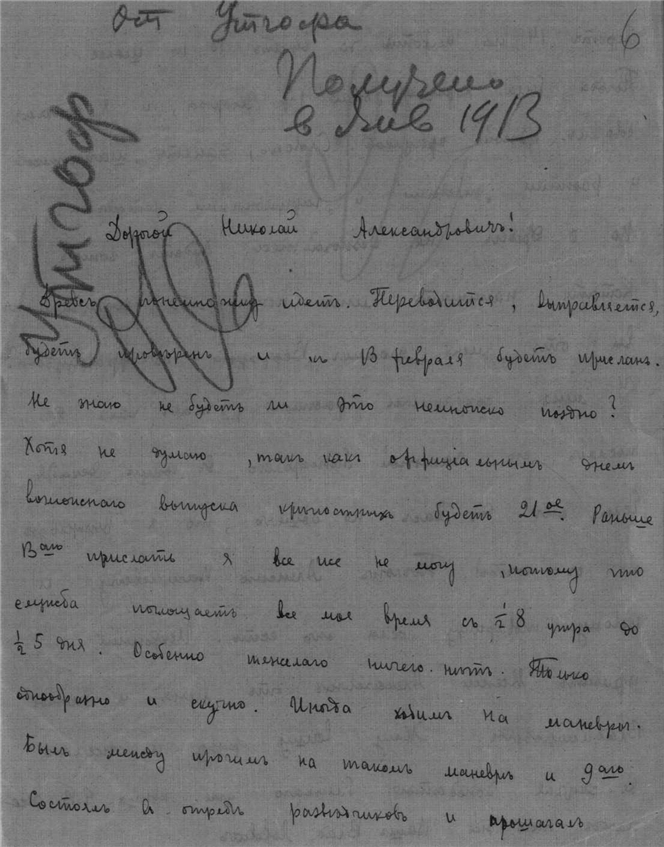 От Утгофа
6
Получено
в Янв 1913
Утгоф
Дорогой Николай Александровичъ!
Древсъ понемножку идетъ. Переводится, выправляется,
будетъ провѣренъ и къ 13 февраля будетъ присланъ.
Не знаю не будетъ ли это немножко поздно?
Хотя не думаю, такъ какъ оффиціальнымъ днемъ
выпуска будетъ 21ое. Раньше
13аго прислать я все же не могу, потому что
служба поглощаетъ все мое время съ ½ 8 утра до
½ 5 дня. Особенно тяжелаго ничего нѣтъ. Только
однообразно и скучно. Иногда ходимъ на маневры.
Былъ между прочимъ на такомъ маневрѣ и 9аго.
Состоялъ въ отрядѣ развѣдчиковъ и прошагалъ